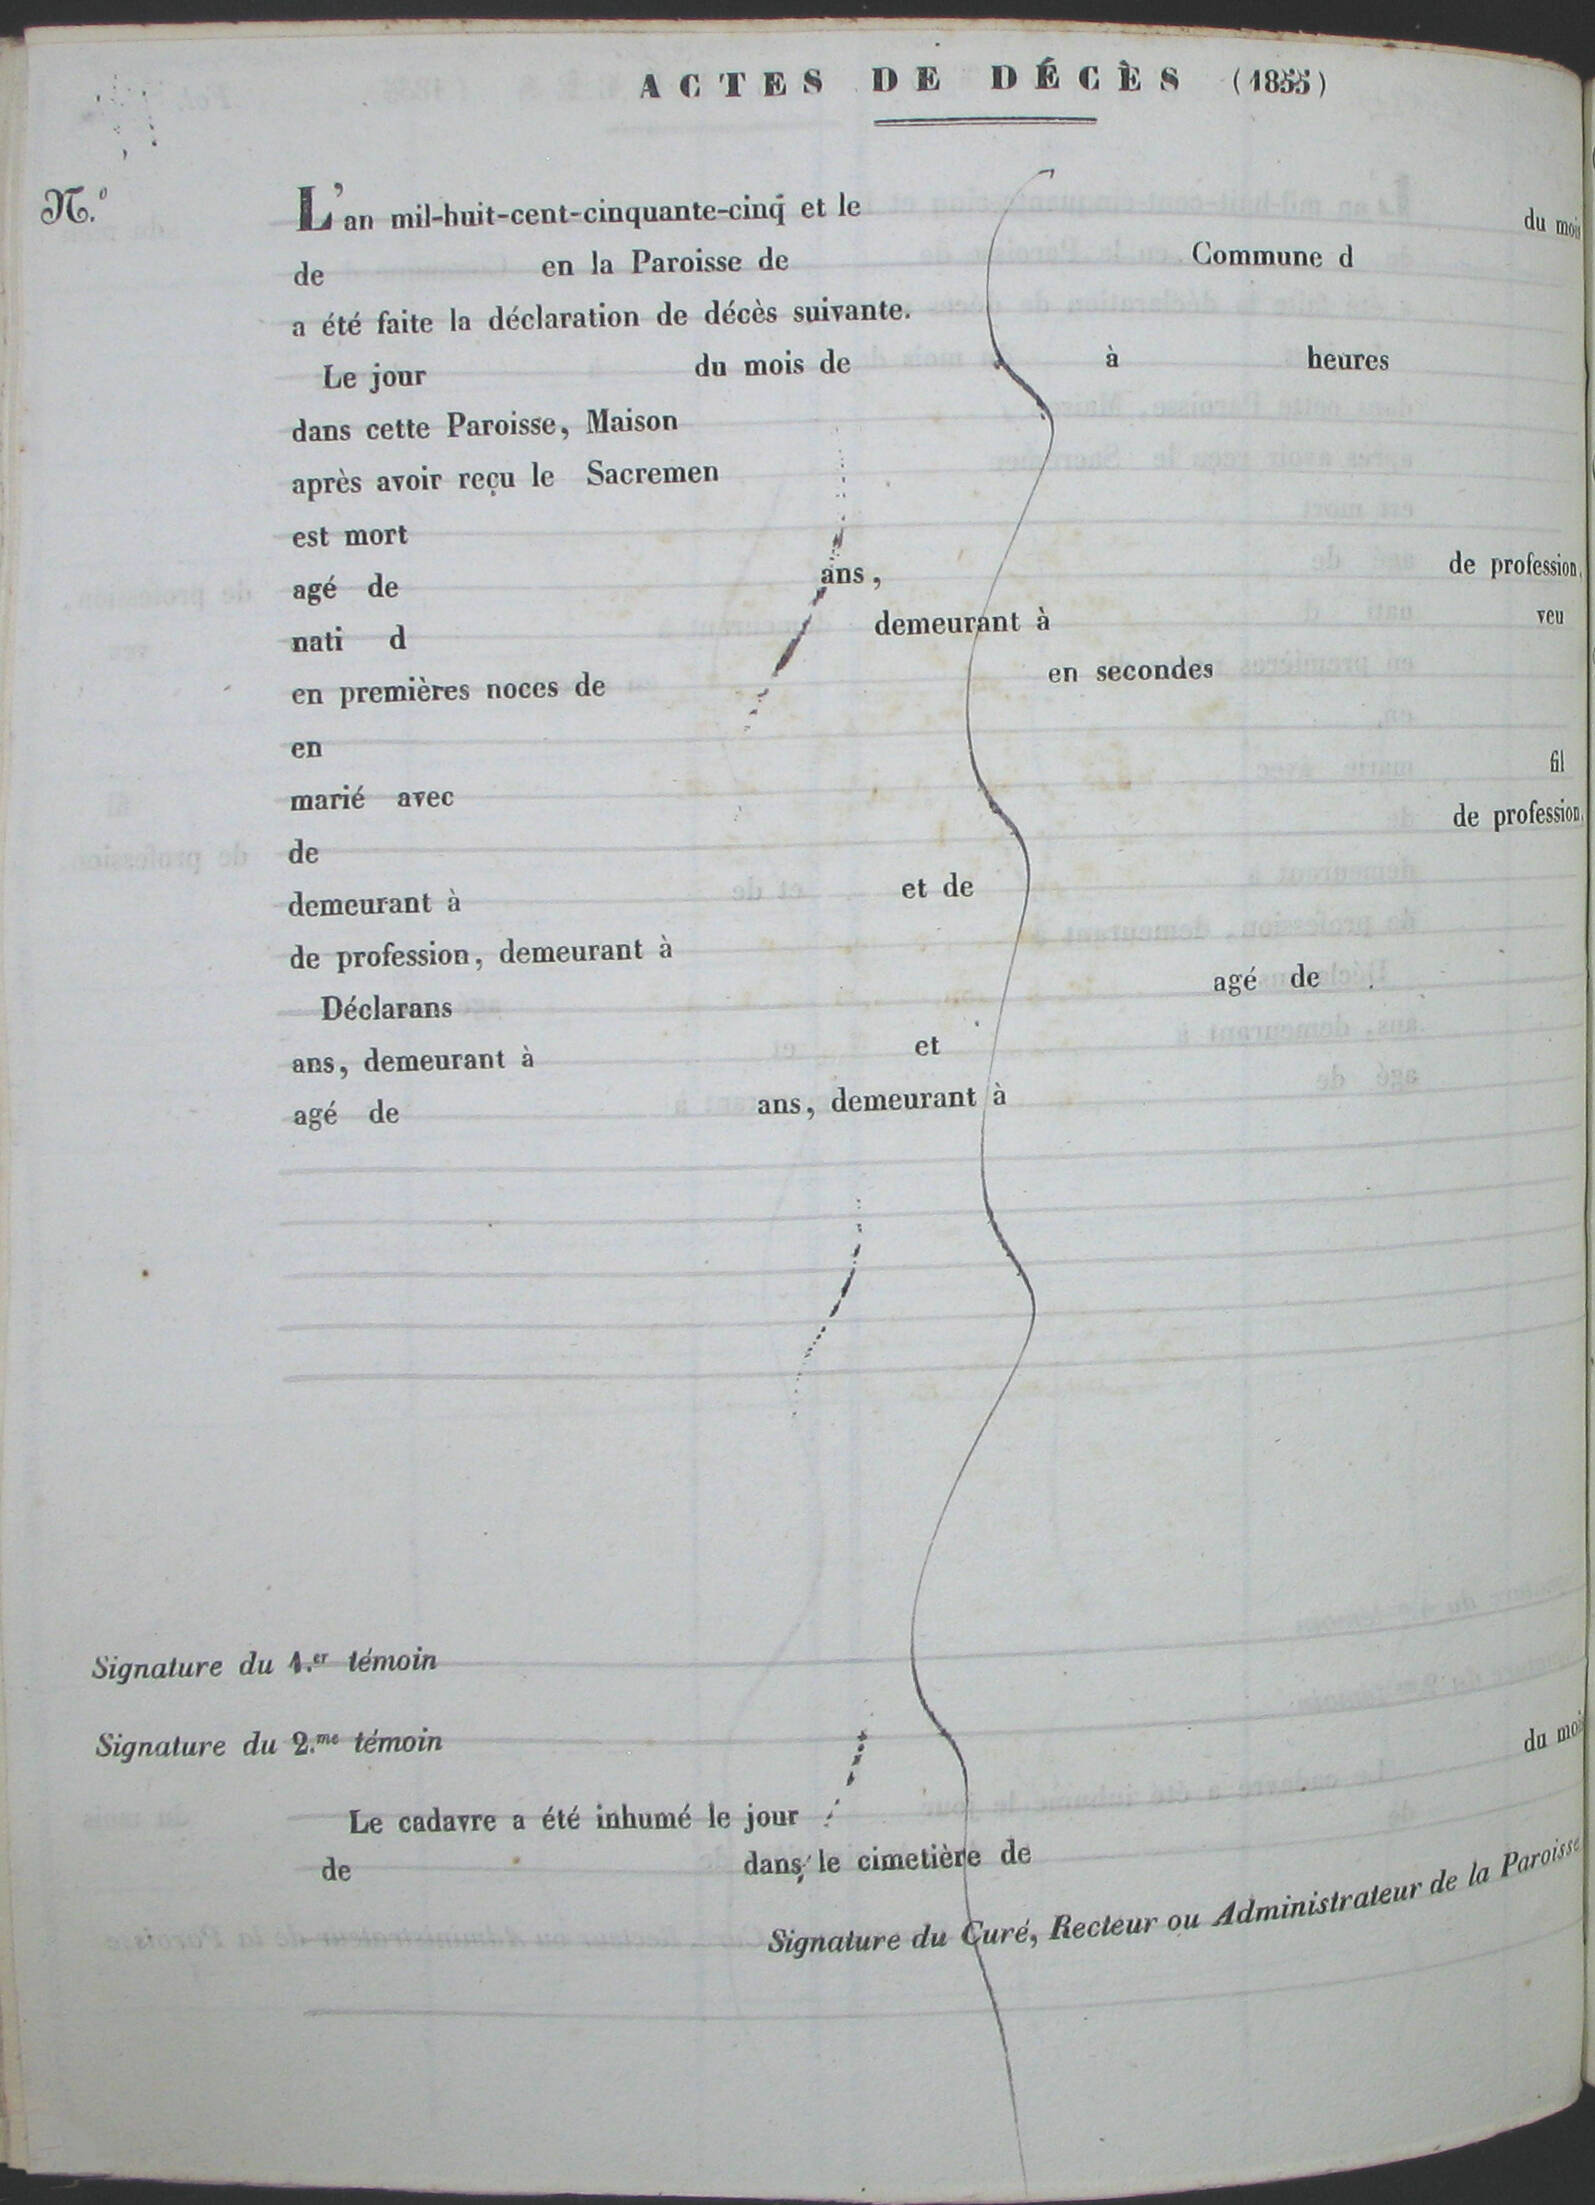 ACTES DE DÉCÈS (1855)
N.º L'an mil-huit-cent-cinquante-cinq et le du mois
de en la Paroisse de Commune d
a été faite la déclaration de décès suivante.
Le jour du mois de à heures
dans cette Paroisse, Maison
après avoir reçu le Sacremen
est mort
agé de ans, de profession,
nati d demeurant à veu
en premières noces de en secondes
en
marié avec fil
de de profession,
demeurant à et de
de profession, demeurant à
Déclarans agé de
ans, demeurant à et
agé de ans, demeurant à
Signature du 1.er témoin
Signature du 2.me témoin
Le cadavre a été inhumé le jour du mois
de dans le cimetière de
Signature du Curé, Recteur ou Administrateur de la Paroisse